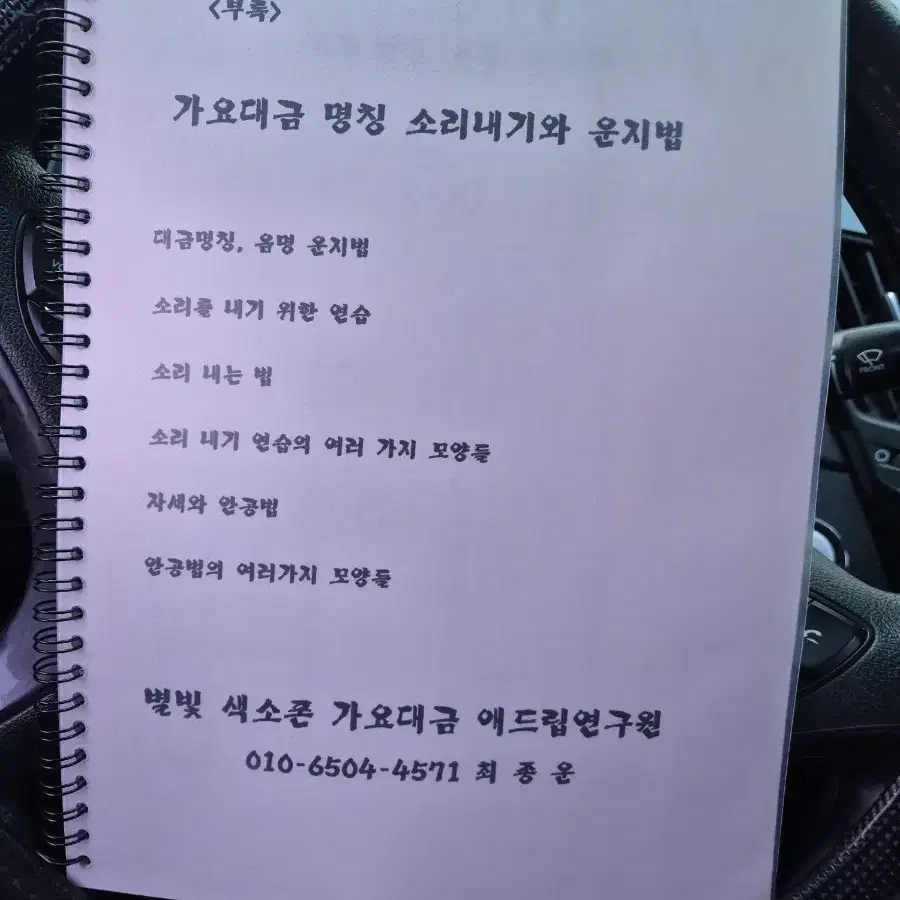 <부록>
가요대금 명칭 소리내기와 운지법
대금명칭, 음명 운지법
소리를 내기 위한 연습
소리 내는 법
소리 내기 연습의 여러 가지 모양들
자세와 안공법
안공법의 여러가지 모양들
별빛 색소폰 가요대금 애드립연구원
010-6504-4571 최 종 운
FRONT